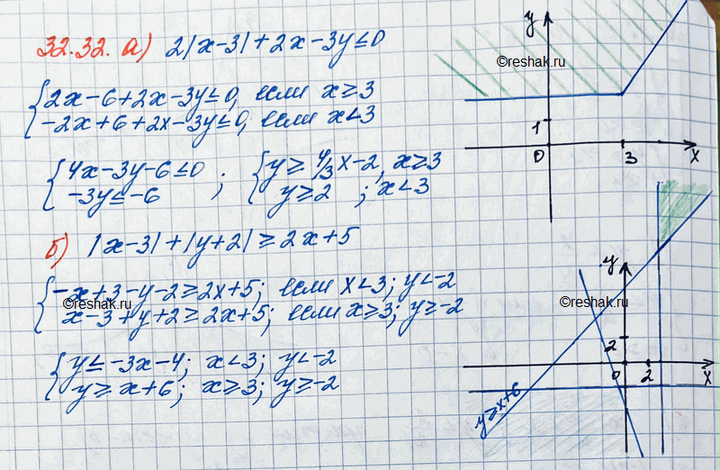 32.32. а) 2|x-3|+2x-3y≤0
{2x-6+2x-3y≤0, если x≥3
-2x+6+2x-3y≤0, если x<3
{4x-3y-6≤0 ; {y≥4/3x-2, x≥3
-3y≤-6 y≥2 ; x<3
б) |x-3|+|y+2|≥2x+5
{-x+3-y-2≥2x+5; если x<3; y<-2
x-3+y+2≥2x+5; если x≥3; y≥-2
{y≤-3x-4; x<3; y<-2
y≥x+6; x≥3; y≥-2
y
©reshak.ru
1
0 3 x
y
©reshak.ru
©reshak.ru
2
0 2 x
y≥x+6